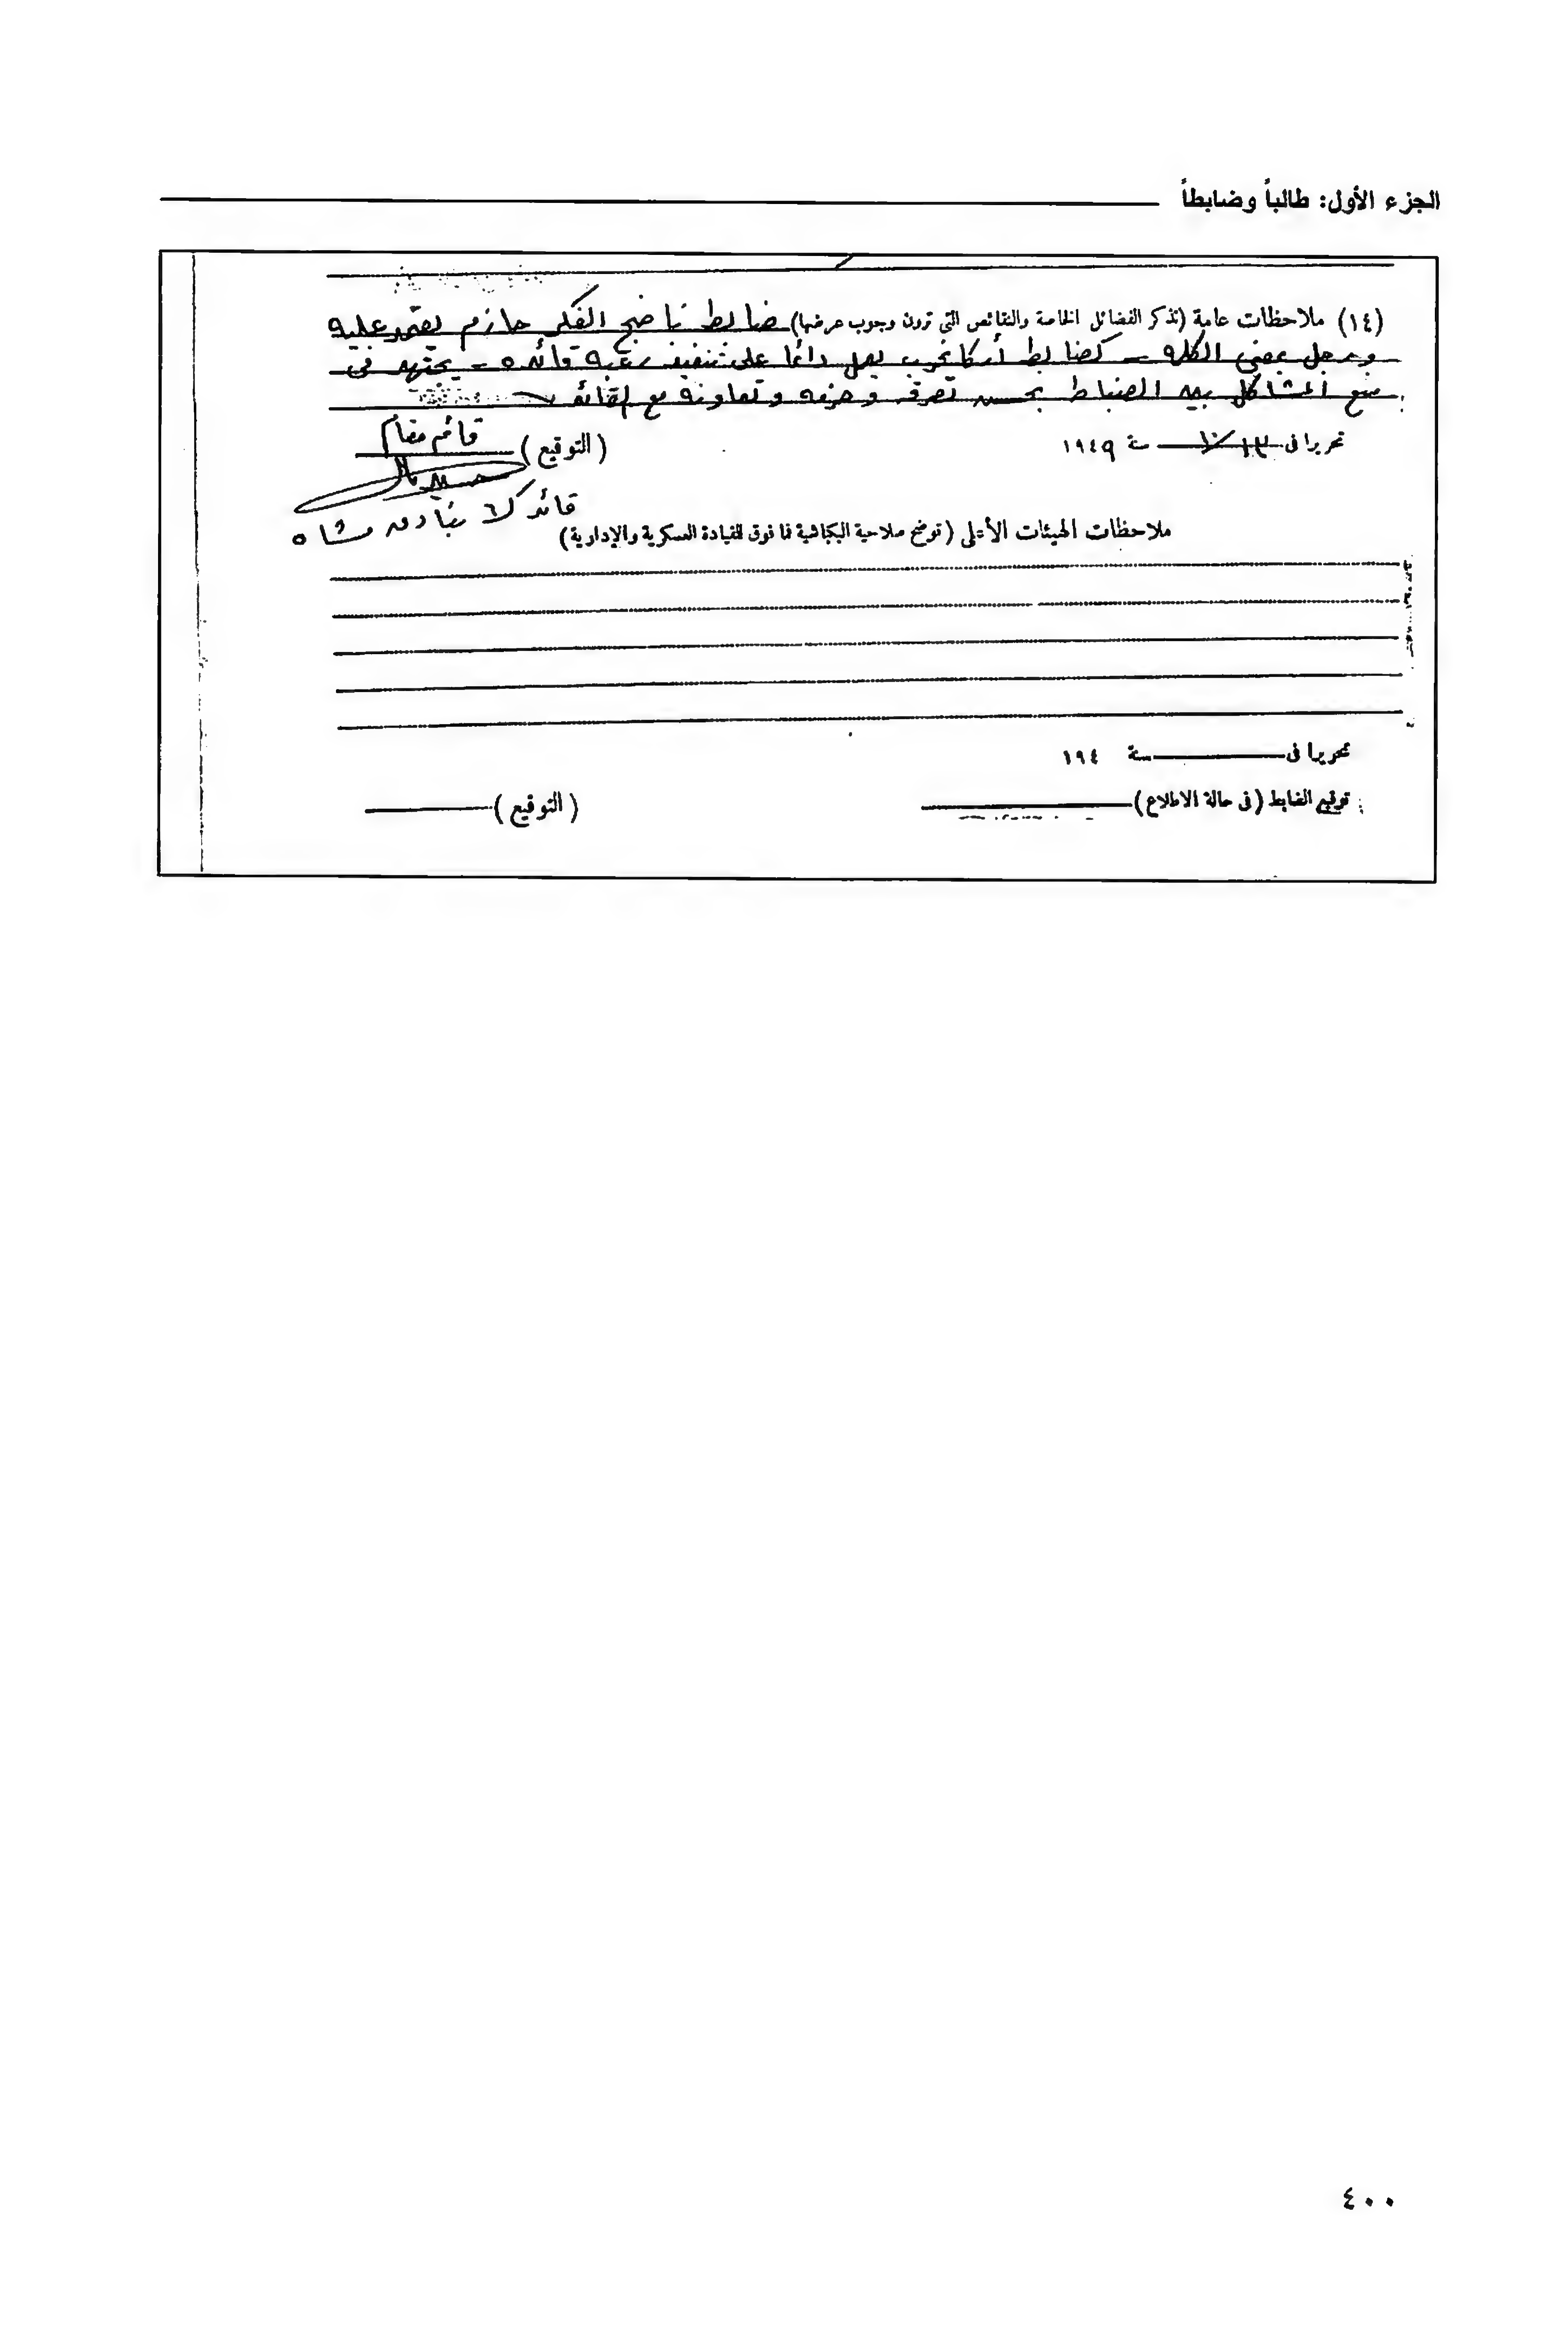 الجزء الأول: طالباً وضابطاً
(١٤) ملاحظات عامة (تذكر الفضائل الخاصة والنقائص التى ترون وجوب عرضها) ضابط ناضج الفكر حازم يعتمد عليه
ورجل بمعنى الكلمة - كضابط أركانحرب يعمل دائما على تنفيذ رغبة قائده - يجتهد فى
منع المشاكل بين الضباط بحسن تصرفه وحزمه وتعاونه مع القائد
تحريرا فى ١٠/١٣ سنة ١٩٤٩ (التوقيع) قائم مقام
قائد ك٦ بنادق مشاه
ملاحظات الهيئات الأعلى (توضح صلاحية البكباشية فما فوق للقيادة العسكرية والإدارية)
تحريرا فى سنة ١٩٤
توقيع الضابط (فى حالة الاطلاع) (التوقيع)
٤٠٠